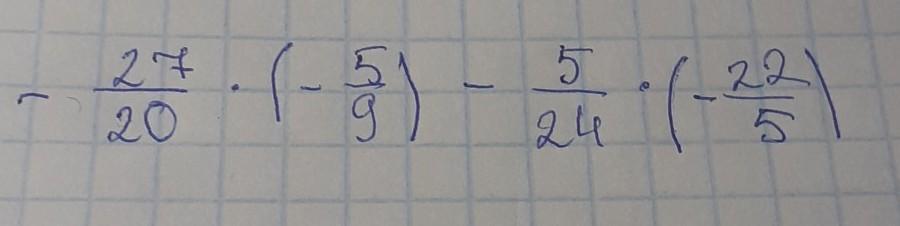 - 27/20 · (- 5/9) - 5/24 · (- 22/5)